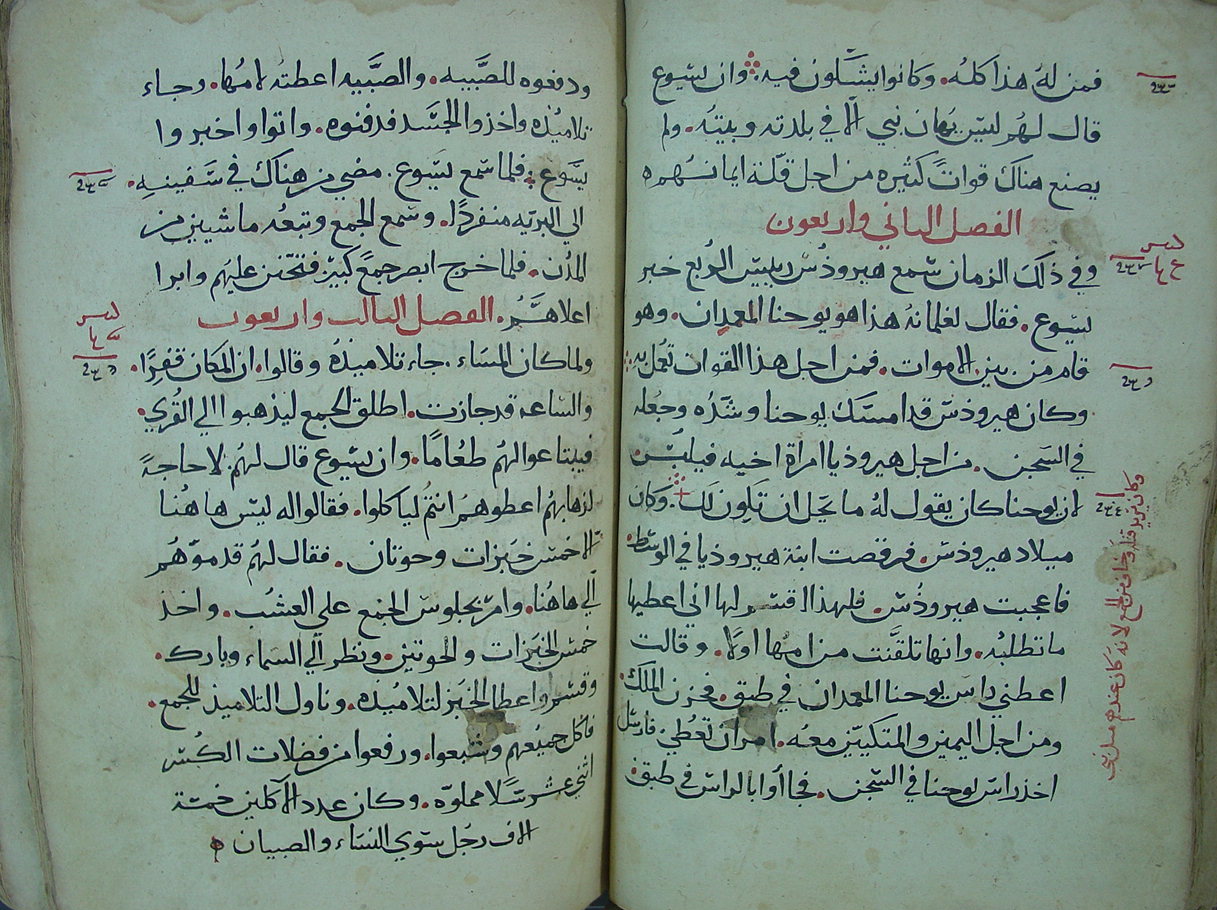 فمن له هذا كله. وكانوا يشكون فيه. وان يسوع
قال لهم ليس يهان نبي الا في بلدته وبيته. ولم
يصنع هناك قواتً كثيره من اجل قلة ايمانهم
الفصل الثاني واربعون
وفي ذلك الزمان سمع هيرودس رييس الربع خبر
يسوع. فقال لغلمانه هذا هو يوحنا المعمدان. وهو
قام من بين الاموات. فمن اجل هذا القوات تعمل به
وكان هيروذس قد امسك يوحنا وشده وجعله
في السجن. من اجل هيروذيا امراة اخيه فيلبس.
لان يوحنا كان يقول له ما يحل ان تكون لك. وكان
وكان يريد قتله وخاف من الجمع لانه كان عندهم مثل نبي
ميلاد هيروذس. فرقصت ابنة هيروذيا في الوسط
فاعجبت هيروذس. فلهذا اقسم لها اني اعطيها
ما تطلبه. وانها تلقنت من امها اولا. وقالت
اعطني راس يوحنا المعمدان في طبق. فحزن الملك.
ومن اجل اليمين والمتكيين معه. امر ان تعطي. فارسل
اخذ راس يوحنا في السجن. فجاوا بالراس في طبق
ودفعوه للصبيه. والصبيه اعطته لامها. وجاء
تلاميذه واخذوا الجسد فدفنوه. واتوا واخبروا
يسوع فلما سمع يسوع. مضي من هناك في سفينه.
الي البريه منفردًا. وسمع الجمع وتبعه ماشيين من
المدن. فلما خرج ابصر جمع كبير فتحنن عليهم وابرا
اعلاهم. الفصل الثالث واربعون
ولما كان المساء. جاء تلاميذه وقالوا. ان المكان قفرًا.
والساعه قد جازت. اطلق الجمع ليذهبوا الي القري.
فيبتاعوا لهم طعامًا. وان يسوع قال لهم. لا حاجةً
لذهابهم اعطوهم انتم لياكلوا. فقالوا له ليس هاهنا
الا خمس خبزات وحوتان. فقال لهم قدموهم
الي هاهنا. وامر بجلوس الجمع علي العشب. واخذ
خمس الخبزات والحوتين. ونظر الي السماء وبارك.
وقسم واعطا الخبز لتلاميذه. وناول التلاميذ للجمع.
فاكل جميعهم وشبعوا. ورفعوا من فضلات الكسر
اثني عشر سلا مملوه. وكان عدد الاكلين خمسة
الاف رجل سوي النساء والصبيان